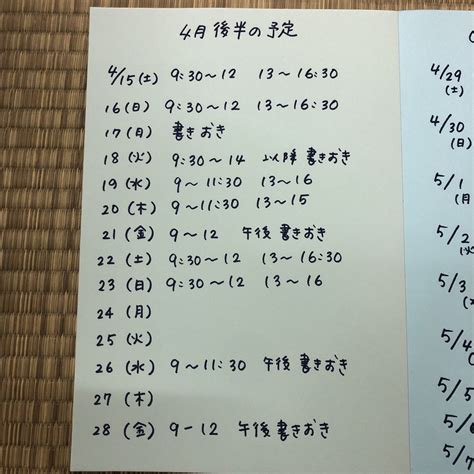 4月後半の予定
4/15(土) 9:30〜12 13〜16:30
16(日) 9:30〜12 13〜16:30
17(月) 書きおき
18(火) 9:30〜14 以降書きおき
19(水) 9〜11:30 13〜16
20(木) 9〜11:30 13〜15
21(金) 9〜12 午後書きおき
22(土) 9:30〜12 13〜16:30
23(日) 9:30〜12 13〜16
24(月)
25(火)
26(水) 9〜11:30 午後書きおき
27(木)
28(金) 9-12 午後書きおき
4/29
(土)
4/30
(日)
5/1
(月
5/2
(火
5/3
5/4
5/5
5/6
5/7